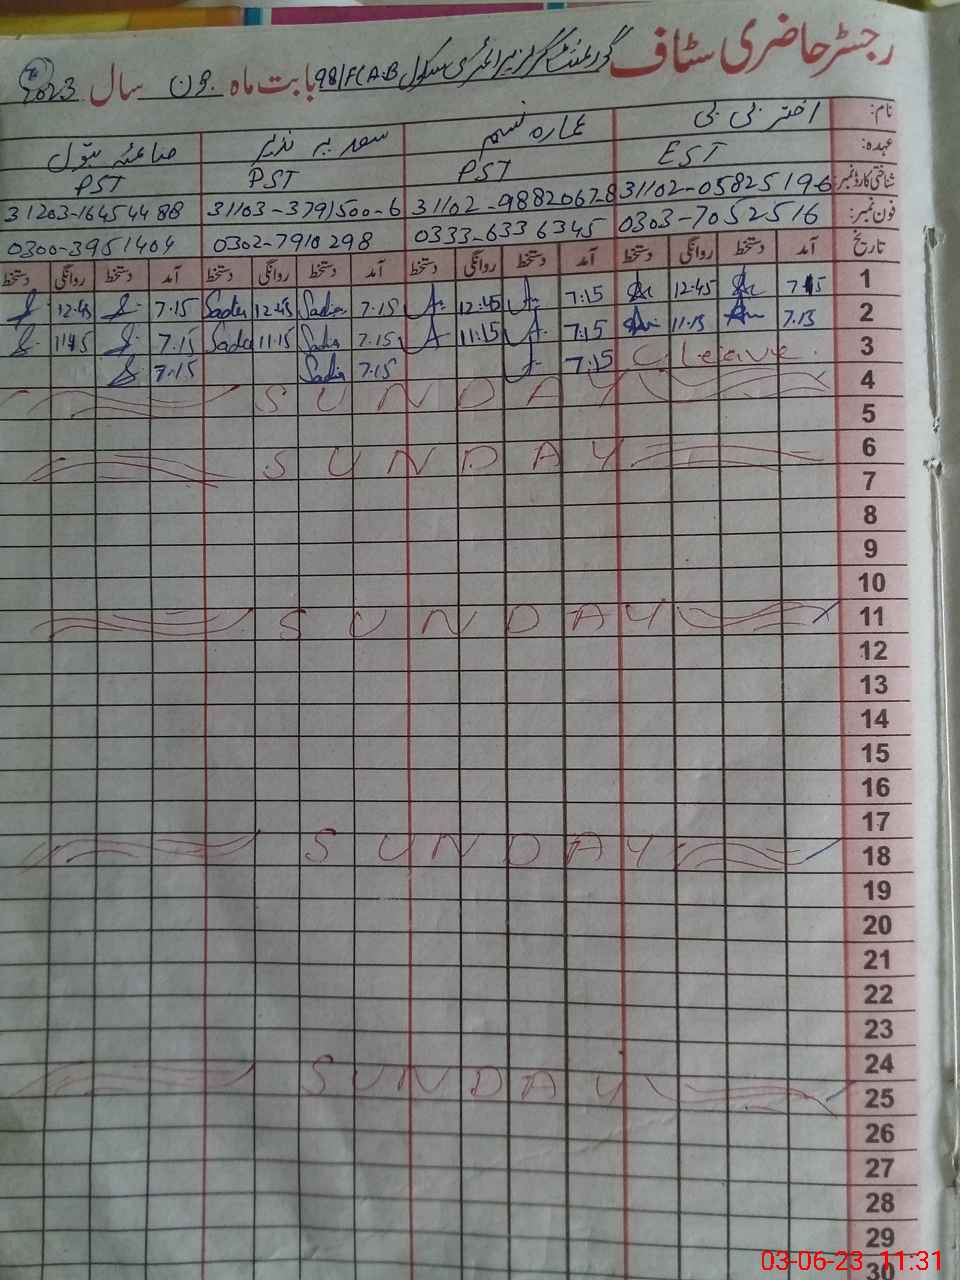 رجسٹر حاضری سٹاف گورنمنٹ گرلز پرائمری سکول 98/F(A.B بابت ماہ جون سال 2023
نام: اختر بی بی عمارہ نسیم سعدیہ نذیر صائمہ بتول
عہدہ: EST PST PST PST
شناختی کارڈ نمبر: 31102-0582519-6 31102-9882067-8 31103-3791500-6 31203-1645448-8
فون نمبر: 0303-7052516 0333-6336345 0302-7910298 0300-3951404
تاریخ آمد دستخط روانگی دستخط آمد دستخط روانگی دستخط آمد دستخط روانگی دستخط آمد دستخط روانگی دستخط
1 7.15 12.45 7:15 12:45 7.15 Sadia 12.45 Sadia 7.15 12.45
2 7.15 11.15 7:15 11:15 7.15 Sadia 11.15 Sadia 7.15 11.45
3 C leave. 7:15 7.15 Sadia 7.15
4 SUNDAY
5
6 SUNDAY
7
8
9
10
11 SUNDAY
12
13
14
15
16
17
18 SUNDAY
19
20
21
22
23
24
25 SUNDAY
26
27
28
29
30
03-06-23 11:31